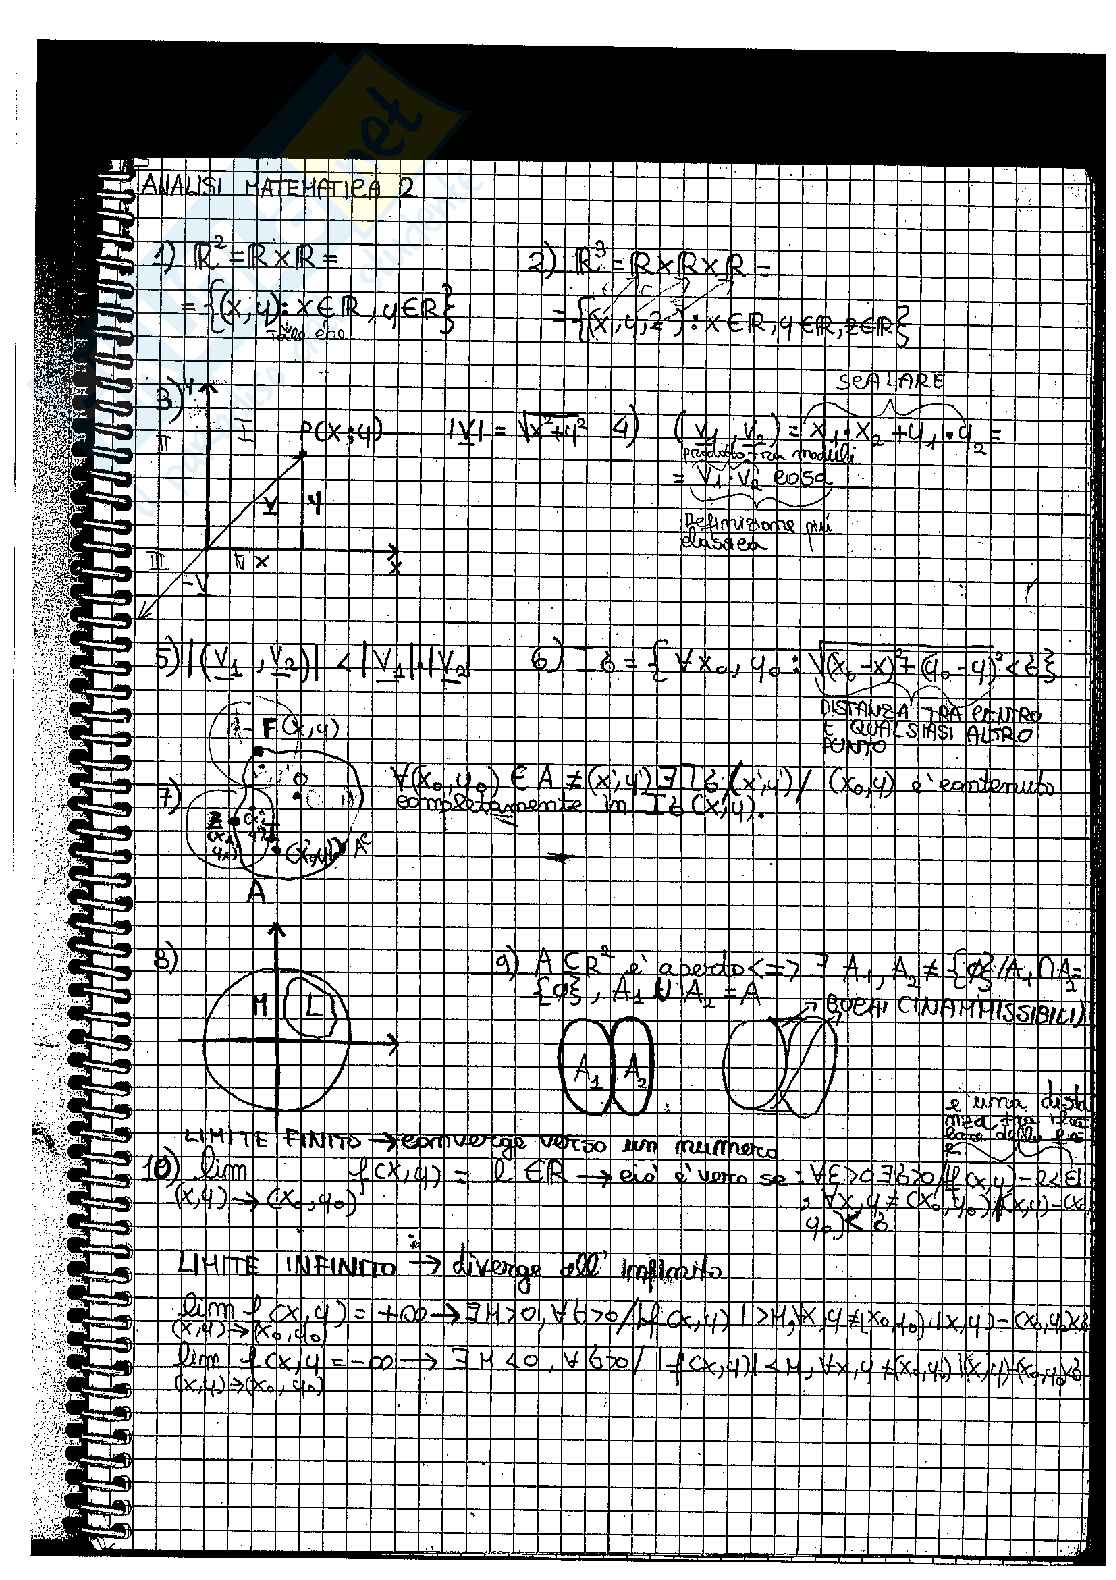 ANALISI MATEMATICA 2
1) ℝ² = ℝ×ℝ =
= {(x,y): x∈ℝ, y∈ℝ}
2) ℝ³ = ℝ×ℝ×ℝ =
= {(x,y,z): x∈ℝ, y∈ℝ, z∈ℝ}
3) y
P(x;y)
|V| = √x²+y²
V
y
x
x
-V
II
III
SCALARE
4) (V1, V2) = x1·x2+y1·y2 =
prodotto tra moduli
= V1·V2 cosα
Definizione più
classica
5) |(V1, V2)| < |V1|·|V2|
6) Iδ = {∀x0, y0: √(x0-x)²+(y0-y)² < δ}
DISTANZA TRA CENTRO
E QUALSIASI ALTRO
PUNTO
7)
F(x,y)
A
∀(x0,y0) ∈ A ≠ (x',y') ∃ Iδ (x',y') / (x0,y) è contenuto
completamente in Iδ(x,y).
8)
M
L
9) A ⊆ ℝ² è aperto <=> ∃ A1, A2 ≠ {∅}/A1∩A2=
{∅}, A1 ∪ A2 = A
→ BUCHI (INAMMISSIBILI)
A1
A2
è una dista
LIMITE FINITO → converge verso un numero
10) lim f(x,y) = l ∈ℝ → ciò è vero se: ∀ε>0 ∃δ>0/|f(x,y)-l|<ε
(x,y)→(x0,y0)
; ∀x,y ≠ (x0,y0)/|(x,y)-(x0
y0)|< δ
LIMITE INFINITO → diverge all'infinito
lim f(x,y) = +∞ → ∃M>0, ∀δ>0/|f(x,y)|>M, ∀x,y≠(x0,y0) |(x,y)-(x0,y)|<δ
(x,y)→(x0,y0)
lim f(x,y = -∞ → ∃M<0, ∀δ>0/ |f(x,y)|<M, ∀x,y ≠(x0,y0) |(x,y)-(x0,y0)|<δ
(x,y)→(x0,y0)